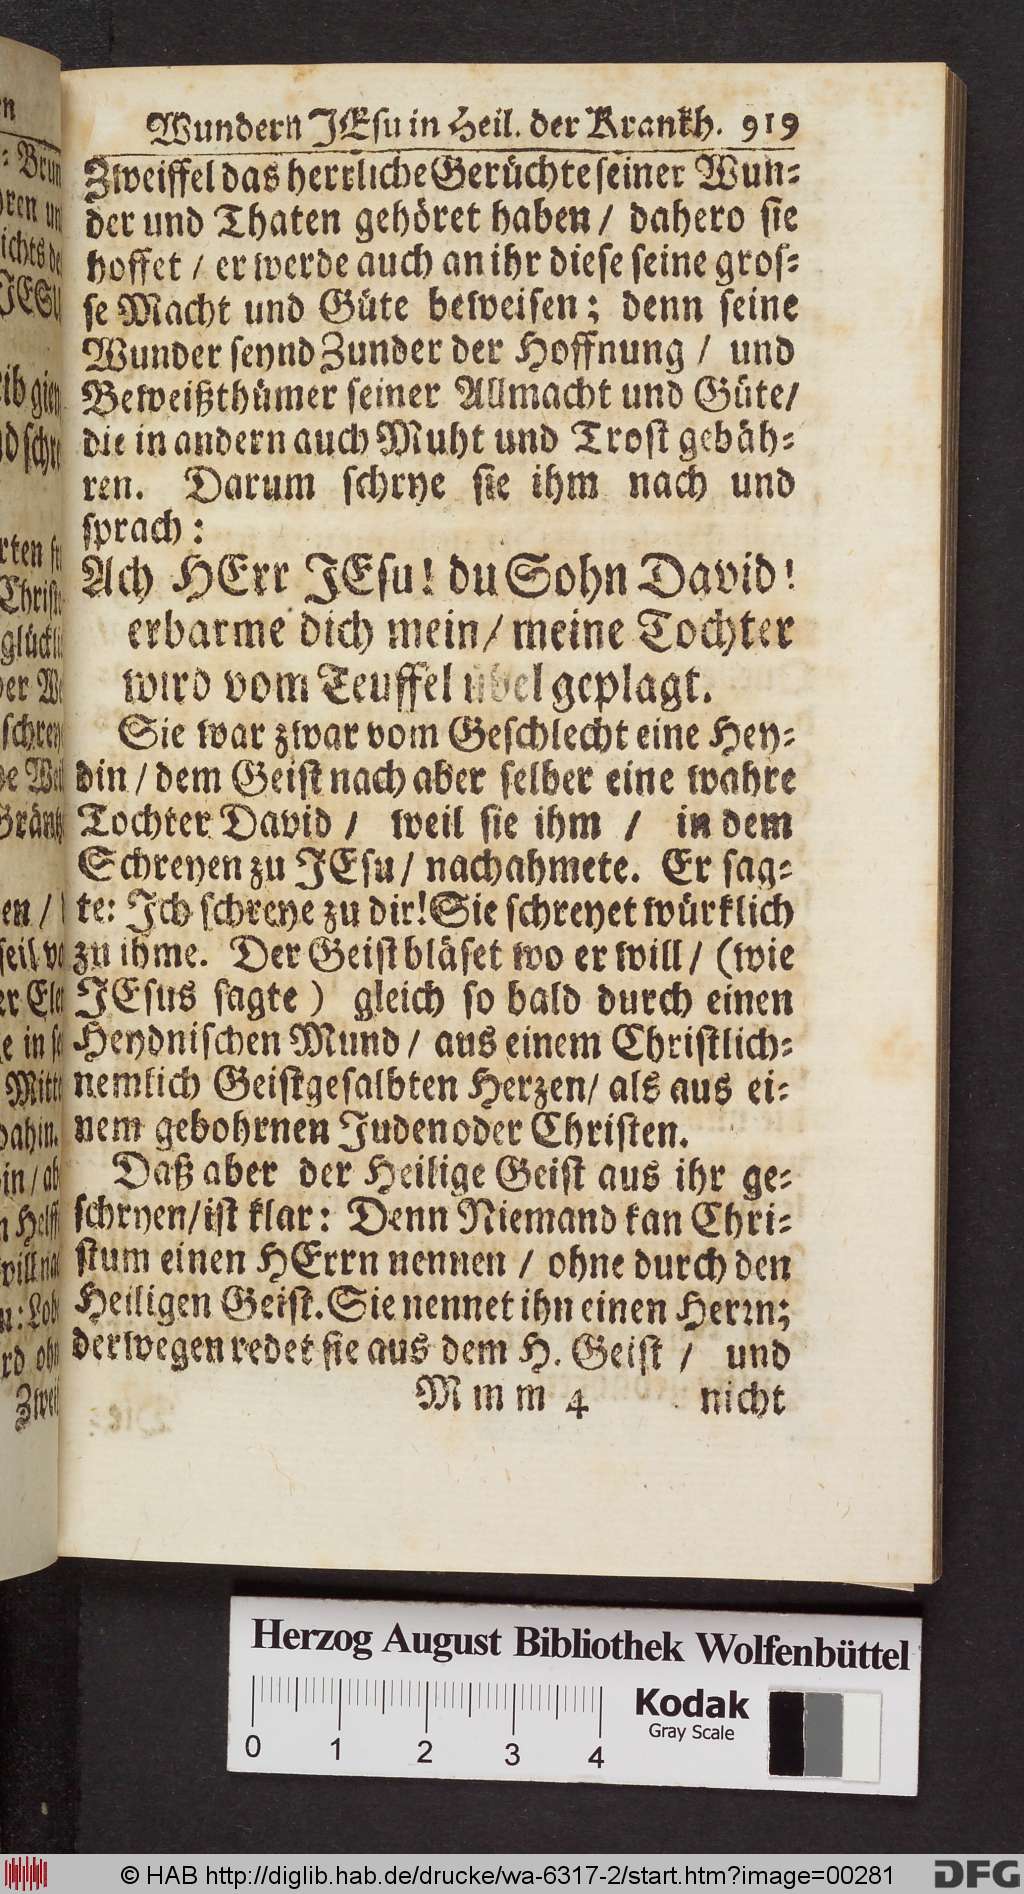 Wundern JEsu in Heil. der Krankh. 919
Zweiffel das herrliche Gerüchte seiner Wun-
der und Thaten gehöret haben / dahero sie
hoffet / er werde auch an ihr diese seine gros-
se Macht und Güte beweisen; denn seine
Wunder seynd Zunder der Hoffnung / und
Beweißthümer seiner Allmacht und Güte/
die in andern auch Muht und Trost gebäh-
ren. Darum schrye sie ihm nach und
sprach:
Ach HErr JEsu! du Sohn David!
erbarme dich mein/ meine Tochter
wird vom Teuffel übel geplagt.
Sie war zwar vom Geschlecht eine Hey-
din / dem Geist nach aber selber eine wahre
Tochter David / weil sie ihm / in dem
Schreyen zu JEsu / nachahmete. Er sag-
te: Jch schreye zu dir! Sie schreyet würklich
zu ihme. Der Geist bläset wo er will / (wie
JEsus sagte) gleich so bald durch einen
Heydnischen Mund / aus einem Christlich-
nemlich Geistgesalbten Herzen/ als aus ei-
nem gebohrnen Juden oder Christen.
Daß aber der Heilige Geist aus ihr ge-
schryen/ist klar: Denn Niemand kan Chri-
stum einen HErrn nennen / ohne durch den
Heiligen Geist. Sie nennet ihn einen Herrn;
derwegen redet sie aus dem H. Geist / und
Mmm 4 nicht
Herzog August Bibliothek Wolfenbüttel
Kodak
Gray Scale
0 1 2 3 4
© HAB http://diglib.hab.de/drucke/wa-6317-2/start.htm?image=00281
DFG